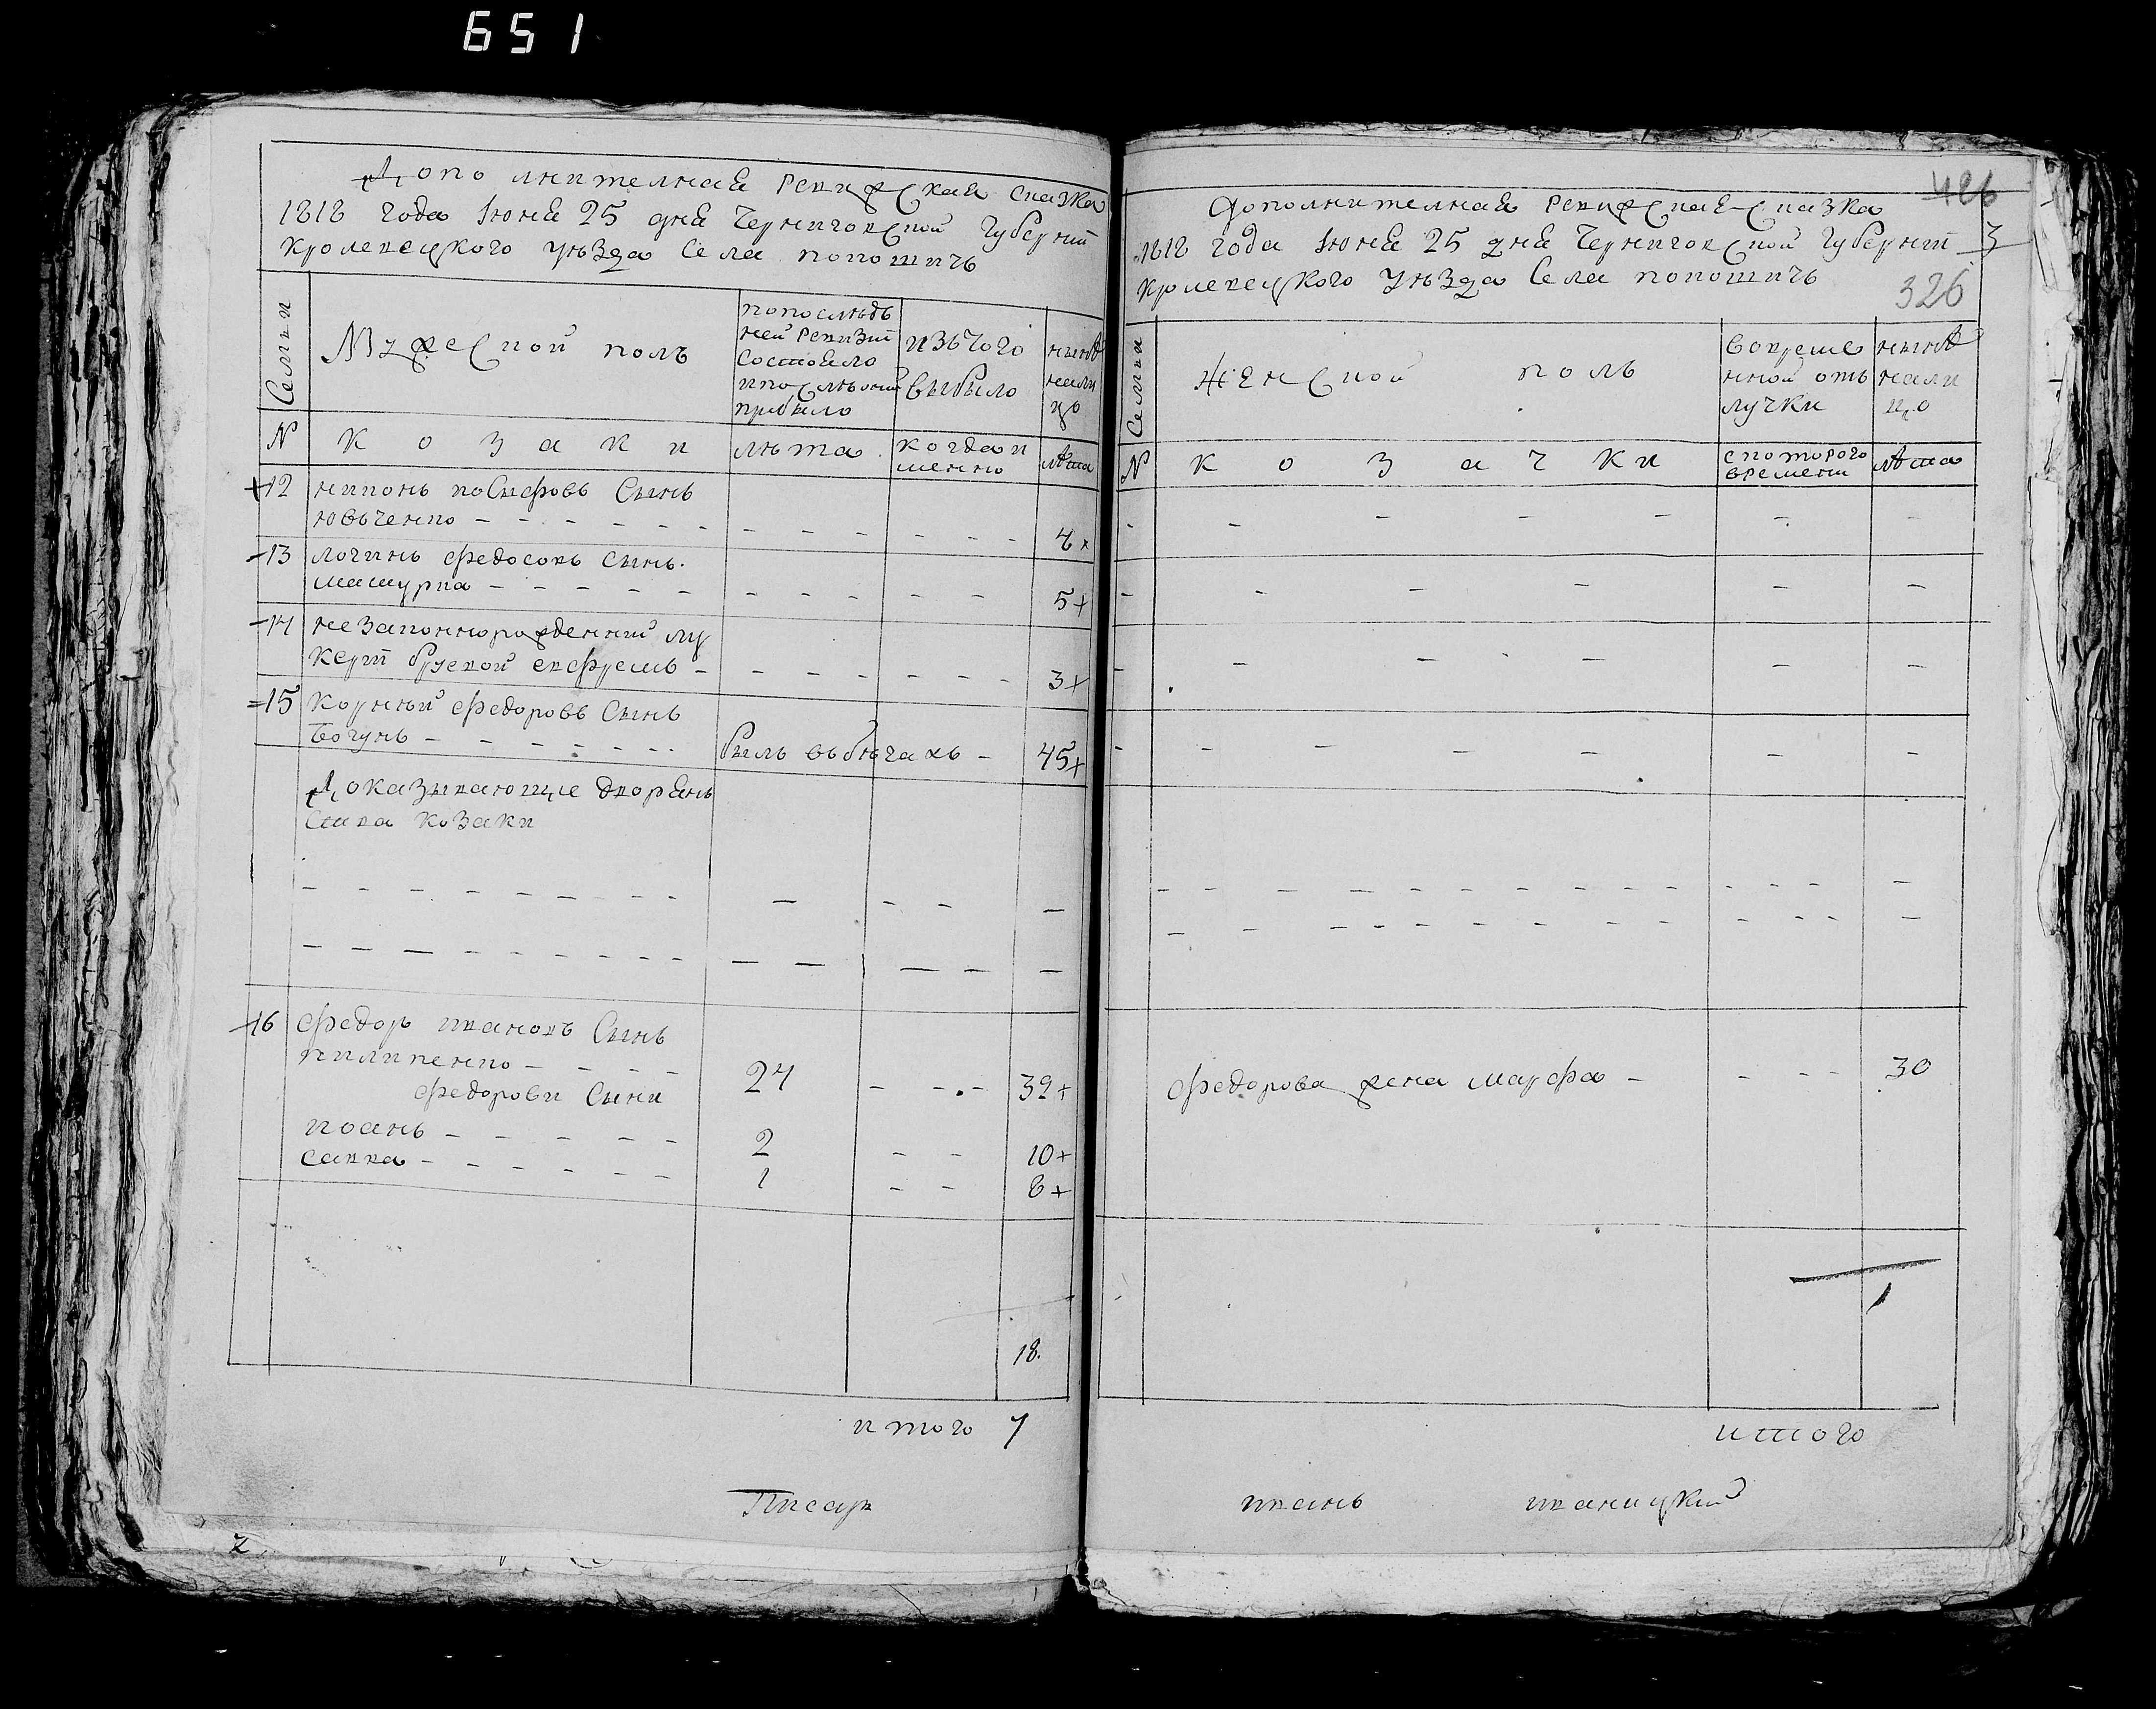 651
Дополнителная ревижская сказка
1818 года Июня 25 дня Черниговской Губернии
Кролевецкого уезда Села Попошичъ
Семьи
Мужеской полъ
попоследь
ней ревизии
состояло
и после оной
прибыло
изъ того
выбыло
ныне
нали
цо
N
Козаки
лета
когда и
менно
лета
12 никонъ иосифовъ Сынъ
ювъченко - - - - - - 4
13 логинъ федосовъ Сынъ
машурка - - - - - 5
14 незаконнорожденний лу
керии бузекой ефремъ - 3
15 Корний федоровъ Сынъ
Богунъ - - - - - - былъ въ бегахъ - 45
Доказывающие дворянъ
ства козаки
16 федоръ ивановъ Сынъ
пилипенко - - - - 24 - - - 32
федорови Сыни
иванъ - - - - - 2 - - 10
савва - - - - - - 1 - - 8
18.
итого 7
Писарь
486
Дополнителная ревижская сказка
1818 года Июня 25 дня Черниговской Губернии
3
Кролевецкого уезда Села Попошичъ
326
Семьи
Женской полъ
вовреме
нной отъ
лучки
ныне
нали
цо
N
Козачки
с которого
времени
лета
федорова жена марфа - - - - 30
1
итого
иванъ иваницкий
2